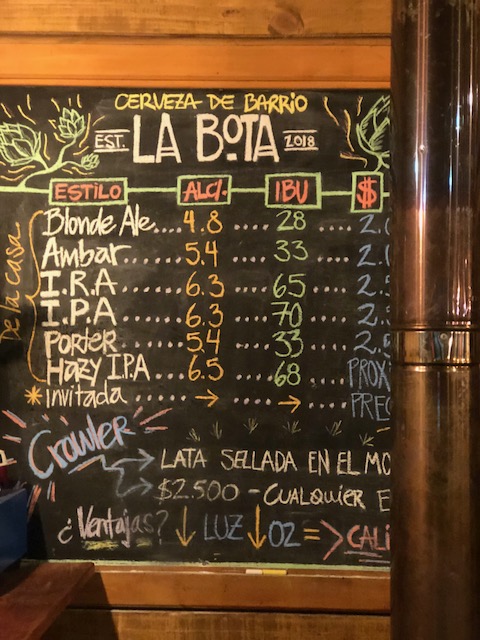 CERVEZA DE BARRIO
EST. LA BOTA 2018
ESTILO ALC/. IBU $$
De la casa
Blonde Ale.... 4.8 .... 28 .... 2.
Ambar..... 5.4 .... 33 .... 2.
I.R.A ..... 6.3 .... 65 .... 2.
I.P.A ..... 6.3 .... 70 .... 2.
Porter..... 5.4 .... 33 .... 2.
Hazy I.P.A .... 6.5 .... 68 .... PROX
*invitada ..... → .... → .... PREC
Crowler → LATA SELLADA EN EL MO
→ $2.500 - CUALQUIER E
¿Ventajas? ↓ LUZ ↓ O2 => CALI